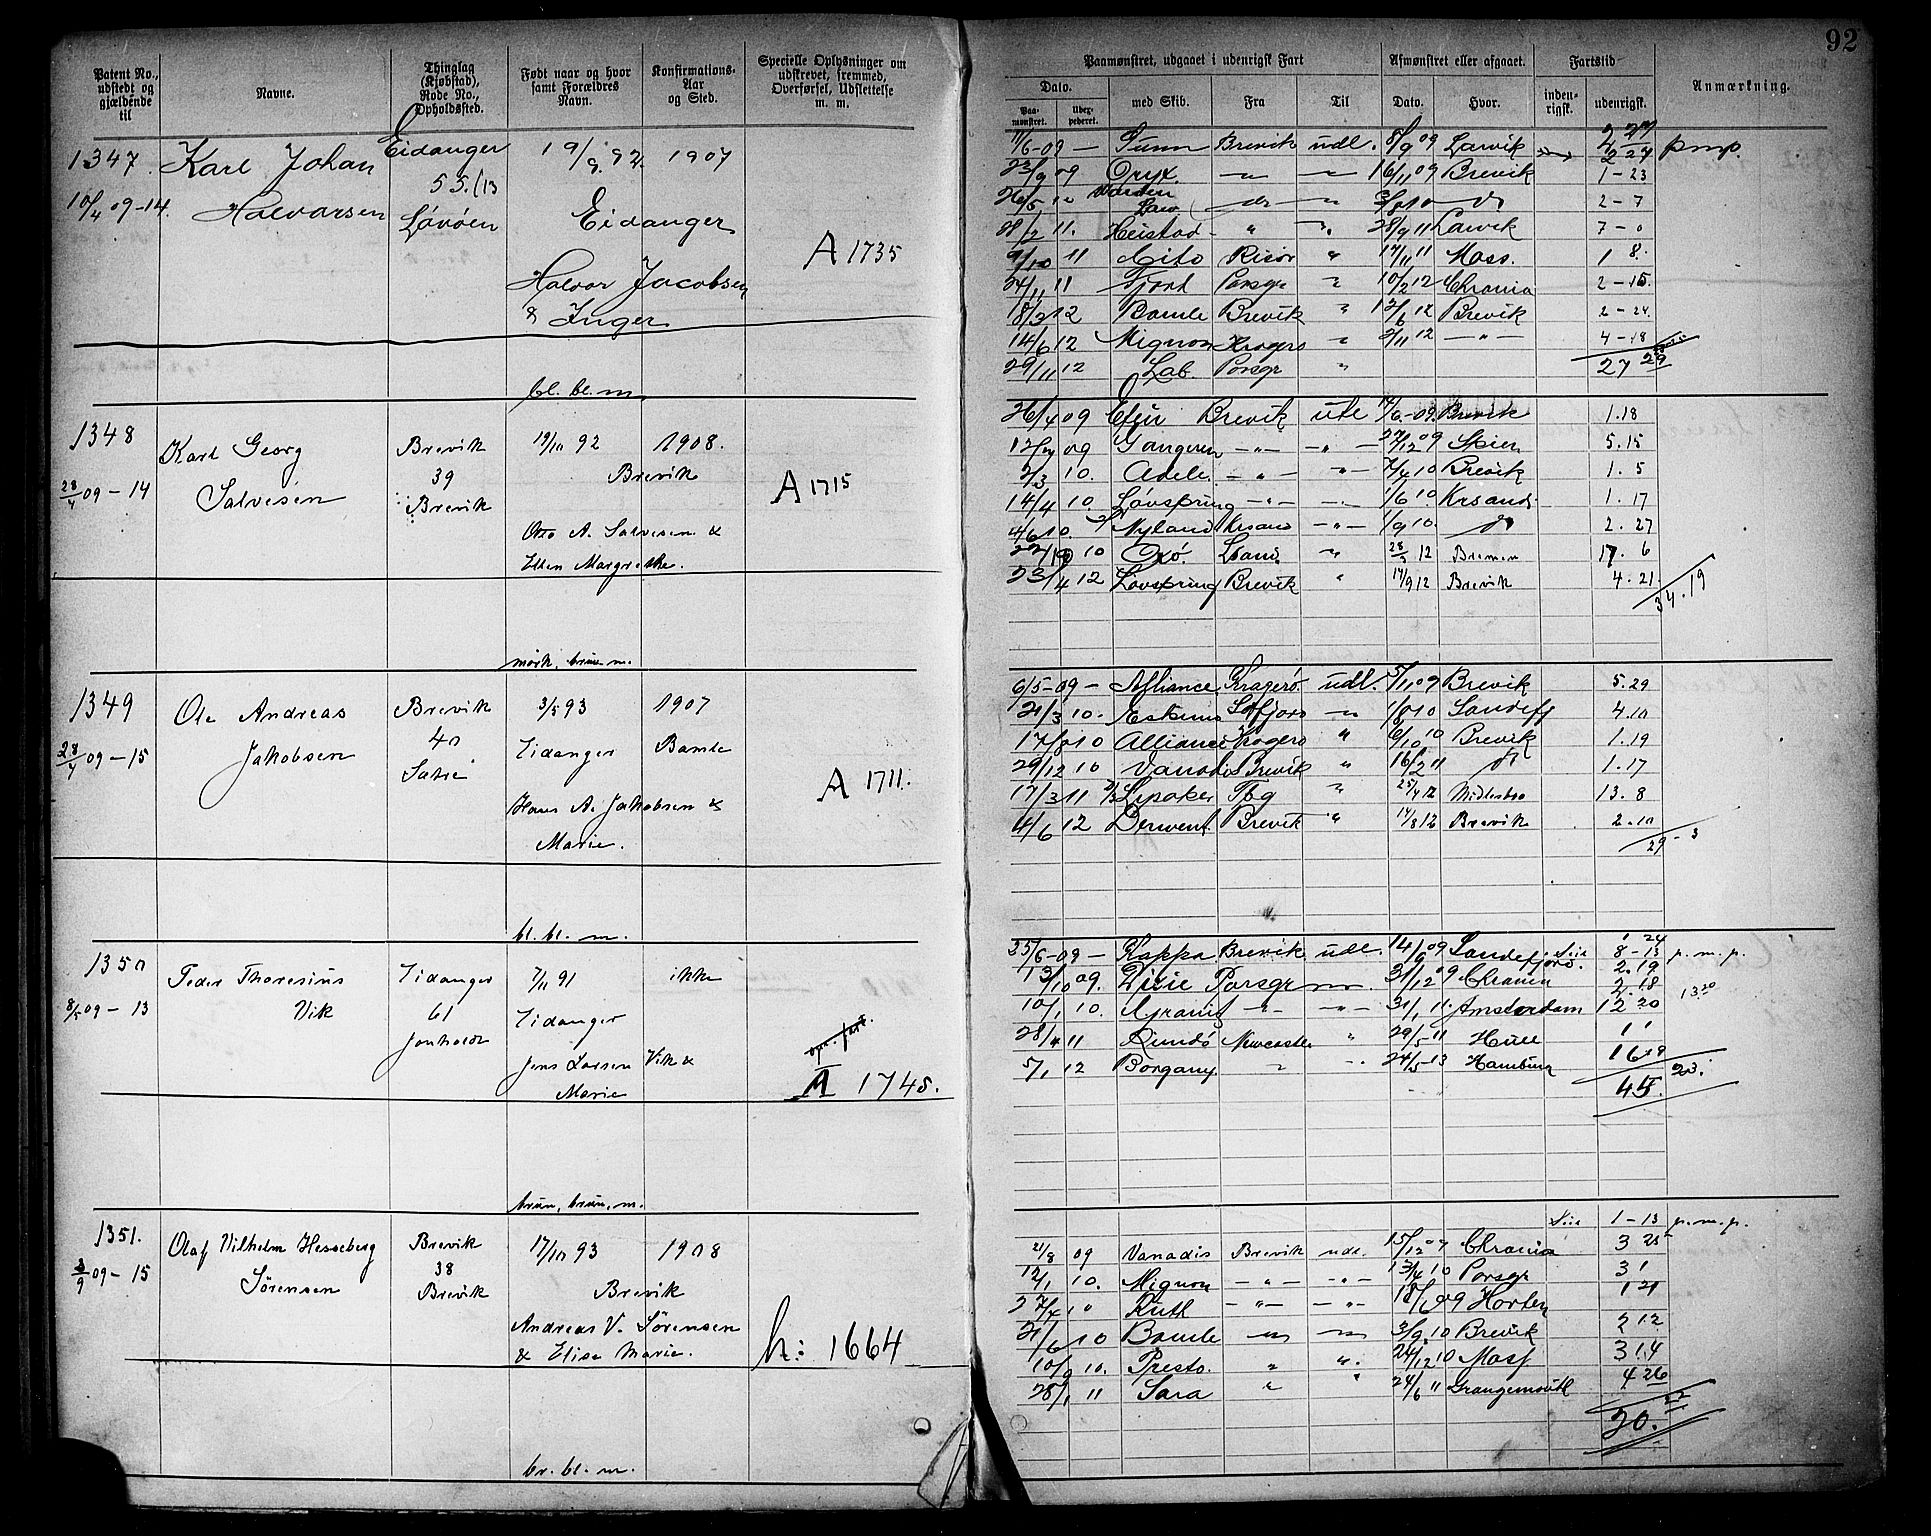 92
Patent No., udstedt og gjældende til
Navne.
Thinglag (Kjøbstad), Rode No., Opholdssted.
Født naar og hvor samt Forældres Navn.
Konfirmations-Aar og Sted.
Specielle Oplysninger om udskrevet, fremmed, Overførsel, Udslettelse m. m.
Paamønstret, udgaaet i udenrigsk Fart
Dato.
Paamønstret.
med Skib.
Fra
Til
Afmønstret eller afgaaet.
Dato.
Hvor.
Fartstid
indenrigsk.
udenrigsk.
Anmærkning.
1347 Karl Johan Eidanger 19/9 92 1907
10/4 09-14. Halvorsen 55./13 Løvøen Eidanger
A 1735
Halvor Jacobsen
& Inger
bl. bl. m.
11/6-09 — Gunn Brevik udl. 8/9 09 Larvik 2 27 pmp.
23/9 09 Oryx 16/11 09 Brevik 1-23
2-7
28/2 11. Heistad 28/9 11 Larvik 7-0
9/10 11 Cito Risør 17/11 11 Moss. 1 8.
24/11 11 Fjord Porsgr 10/2 12 Chrania 2-15
18/3 12 Bamle Brevik 12/6 12 Brevik 2-24
14/6 12 Mignon Kragerø 2/11 12 — " — 4-18
29/11 12 Lab Porsgr
27 29
1348 Karl Georg Brevik 19/10 92 1908.
28/4 09-14 Salvesen 39 Brevik Brevik
A 1715
Otto A. Salvesen &
Ellen Margrethe.
mørk, brun m.
26/4 09 Brevik ute 14/6-09 Brevik 1.18
12/7 09 Gangeren 27/12 09 Skien 5.15
2/3 10. Adele 7/4 10 Brevik 1.5
14/4 10. Løvspring 1/6 10 Krsand 1.17
4/6 10 Nyland Krsand 1/9 10. do 2.27
10 Oxø. 28/3 12 Bremen 17.6
23/4 12 Løvspring Brevik 14/9 12 Brevik 4.21
34.19
1349 Ole Andreas Brevik 3/5 93 1907
28/4 09-15 Jakobsen 40 Eidanger Bamle
A 1711.
Hans A. Jakobsen &
Marie.
bl. bl. m.
6/5-09 — Alliance Kragerø udl. 5/11 09 Brevik 5.29
21/3 10. 1/8 10 Sandefj 4.10
17/8 10 Alliance Kragerø 6/10 10 Brevik 1.19
29/12 10 Vanadis Brevik 16/2 11 do 1.17
17/3 11 Tbg 25/4 12 Midlesbro 13.8
4/6 12 Derwent Brevik 14/8 12 Brevik 2.10
29-3
1350 Peder Thoresius Eidanger 7/11 91 ikke
8/5 09-13 Vik 61 Eidanger
Jønholdt
Jens Larsen Vik &
Marie
A 1745.
brun, brun, m.
25/6-09 — Kappa Brevik udl. 14/8 09 Sandefjord. 1 24
8-13 p. m. p.
13/10 09. Dixie Porsgr 31/12 09 Chrania 2.19
2.18
10/1 10. Granit 31/1 11 Amsterdam 12 20 13 20
28/4 11 Rundø Newcastle 29/5 11 Hull 1 1
5/1 12 Borgany 24/5-13 Hamburg 16 19
45. 23.
1351. Olaf Vilhelm Hesseberg Brevik 17/10 93 1908
3/9 09-15 Sørensen 38 Brevik Brevik
Andreas V. Sørensen
& Elise Marie.
h: 1664
br. bl. m.
1-13 p. m. p.
21/8 09 Vanadis Brevik udl. 15/12 09 Chrania 3 25
12/1 10. Mignon 13/4 10 Porsgr 3 1
27/4 10 Ruth 18/6 09 Horten 1 21
21/6 10 Bamle 3/9 10 Brevik 2 12
10/9 10. Presto. 24/12 10 Moss 3 14
28/1 11 Sara 24/6 11 Grangemouth 4 26
20. 22